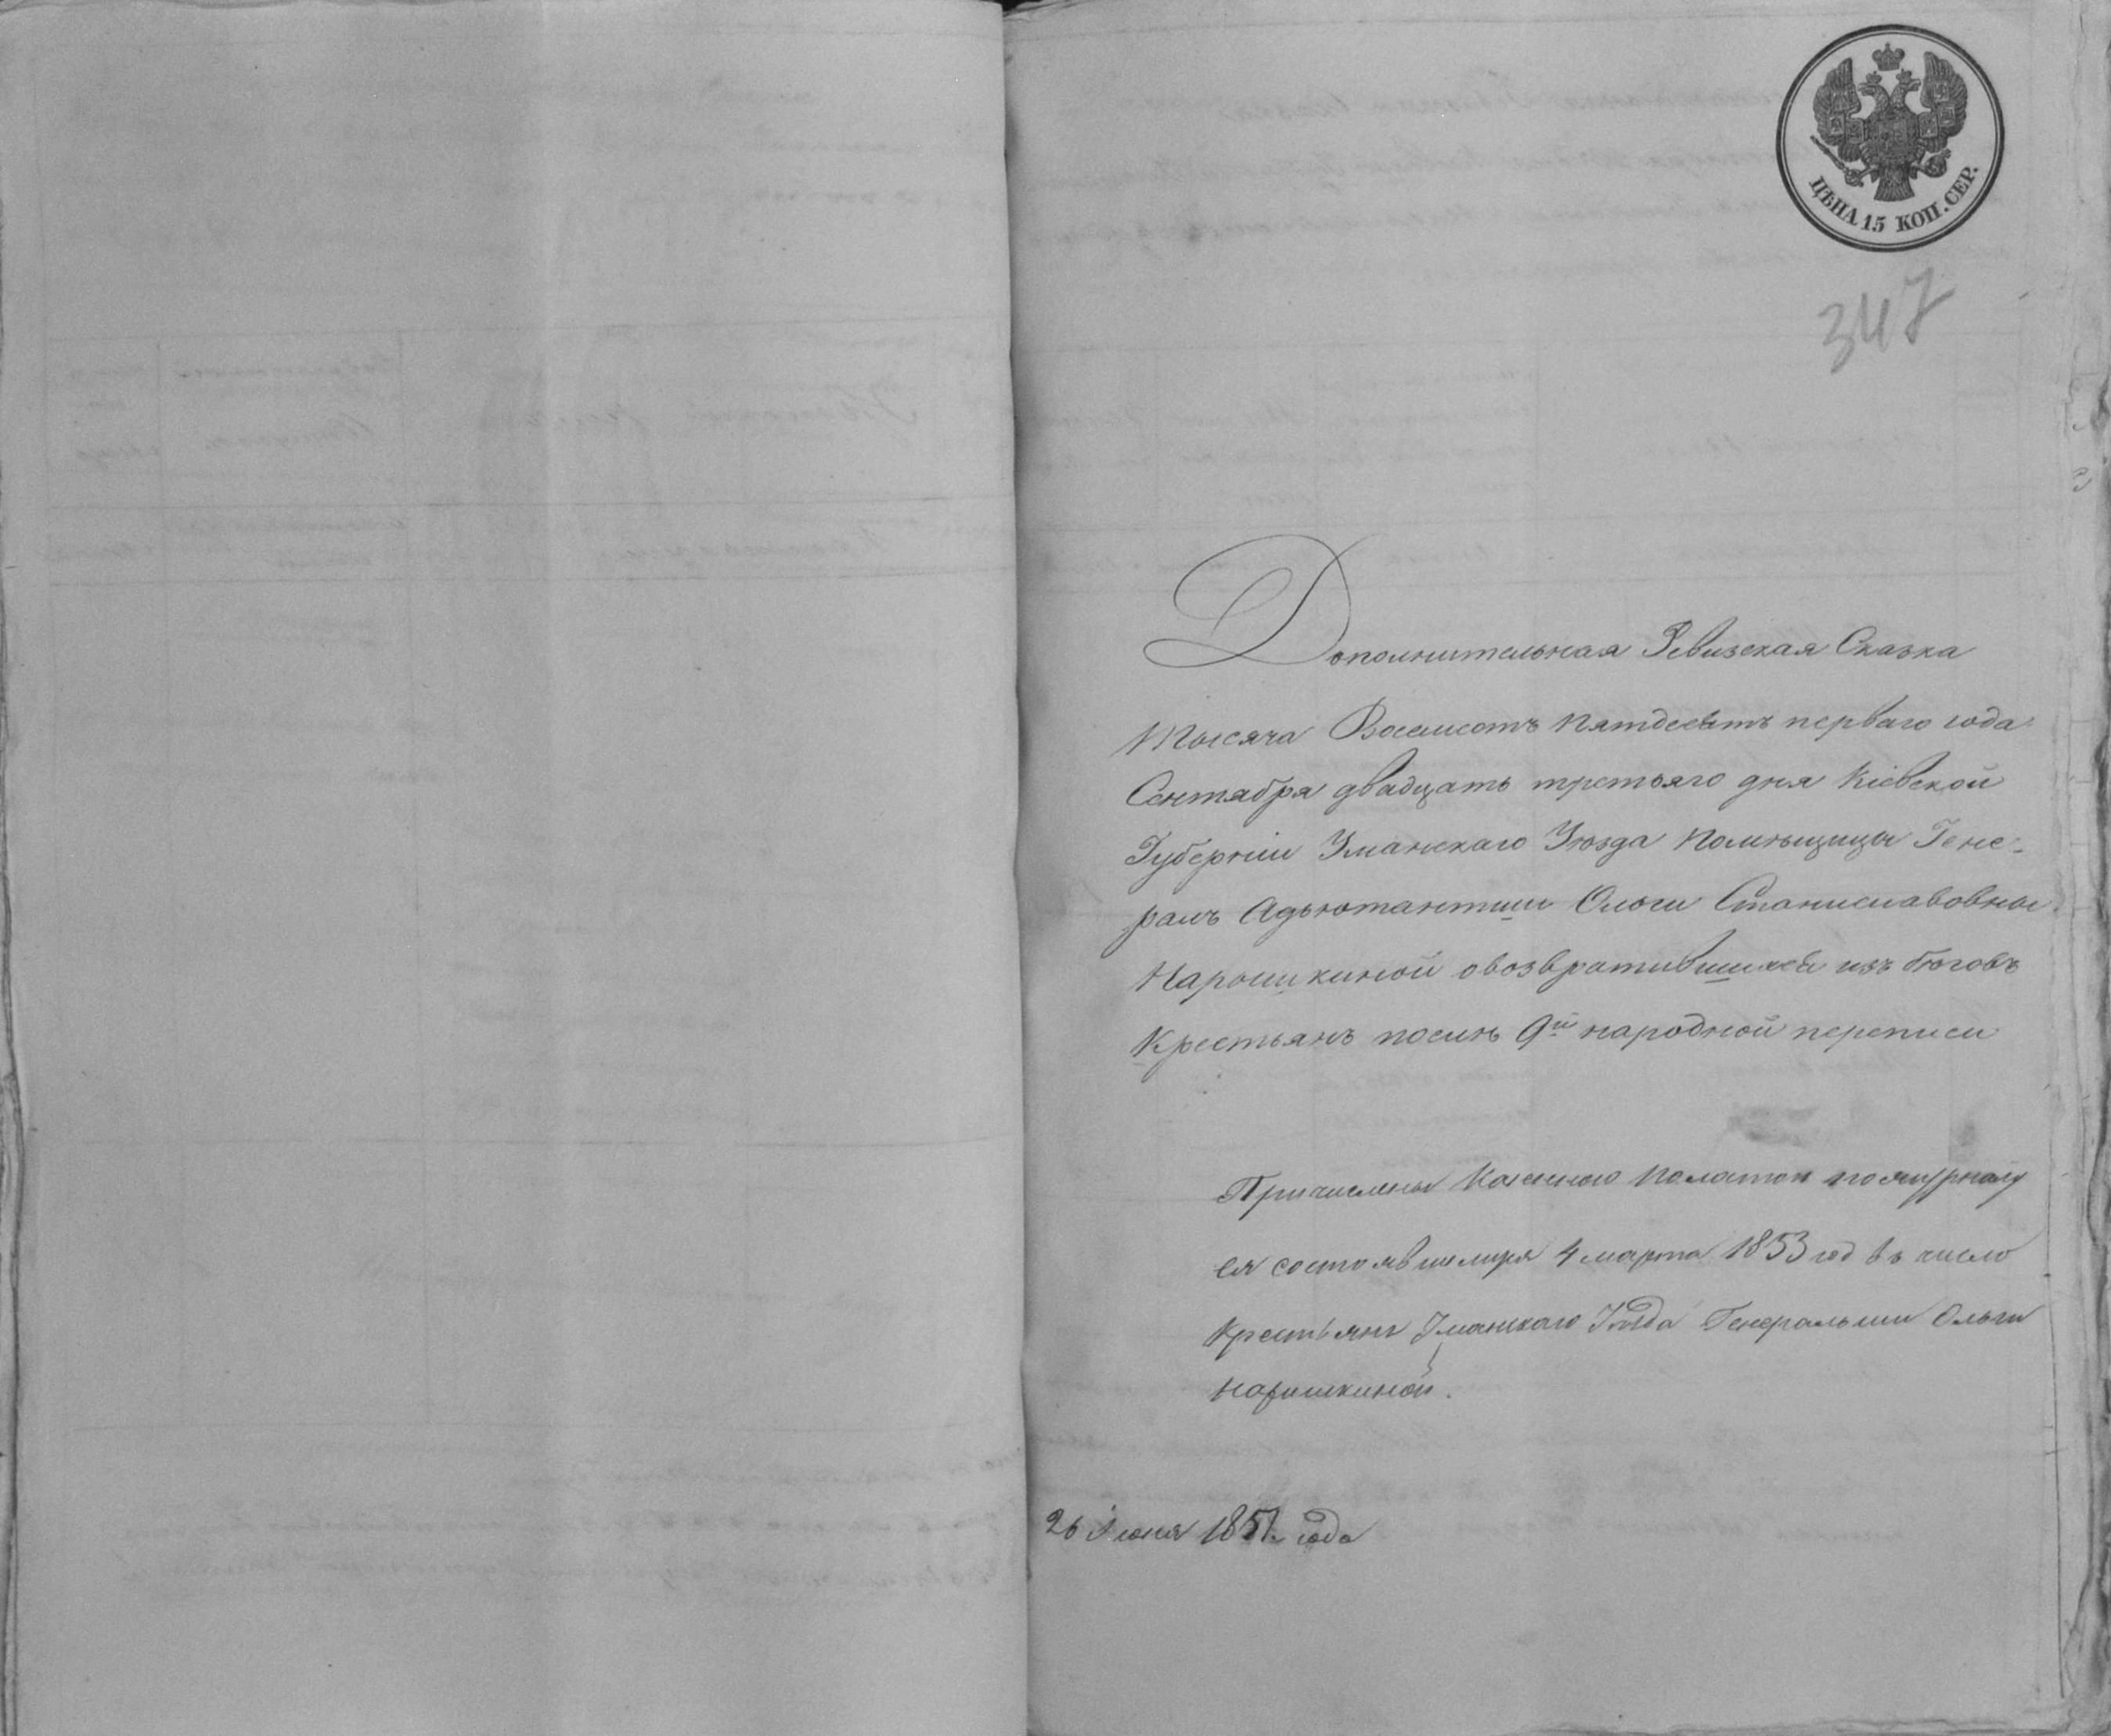 ЦѢНА 15 КОП. СЕР.
347
Дополнительная Ревизская Сказка
Тысяча Восемсотъ пятдесятъ перваго года
Сентября двадцать третьяго дня Кіевской
Губерніи Уманскаго Уѣзда Помѣщицы Гене-
ралъ Адъютантши Ольги Станиславовны
Нарышкиной овозвратившихся изъ бѣговъ
Крестьянъ послѣ 9й народной переписи
Причислены Казенною Полатою по журналу
ея состоявшемуся 4 марта 1853 год въ число
Крестьянъ Уманскаго Уѣзда Генеральши Ольги
Нарышкиной.
26 Іюня 1851 года